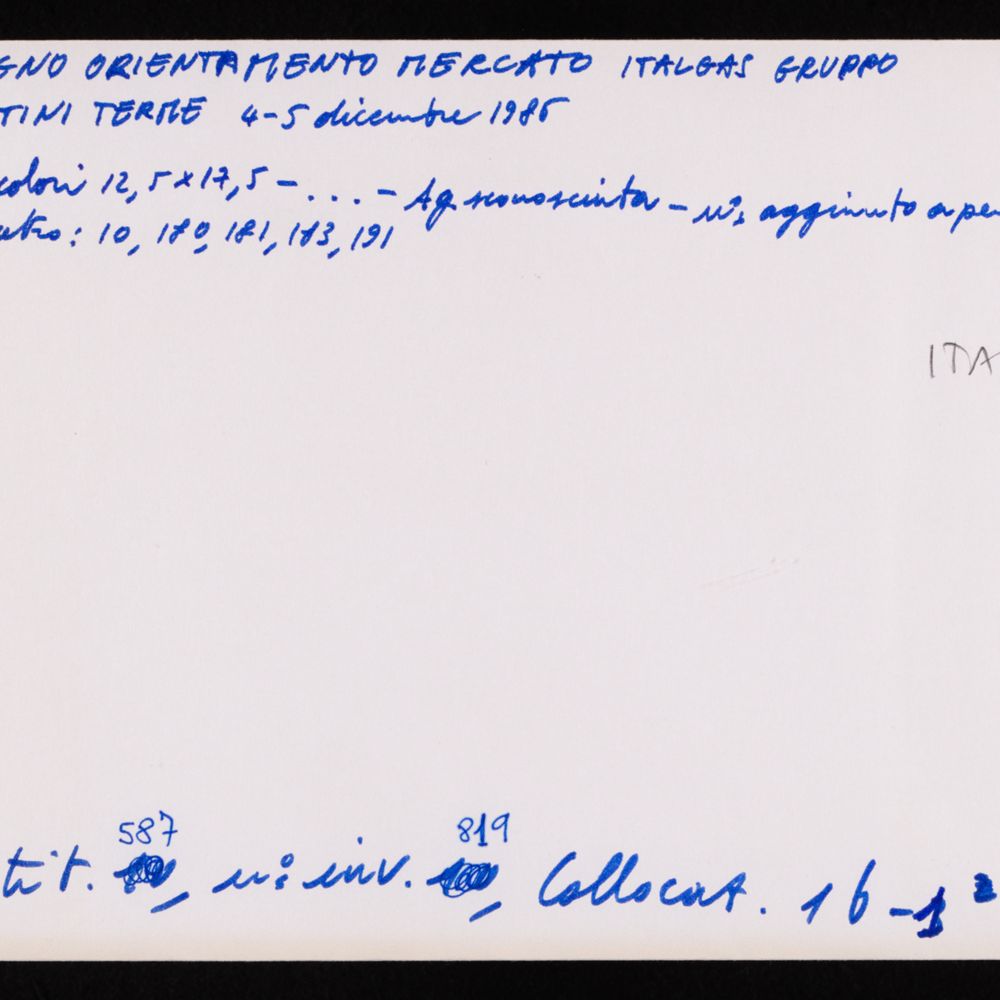 GNO ORIENTAMENTO MERCATO ITALGAS GRUPPO
TINI TERME 4-5 dicembre 1986
colori 12,5x17,5 - ... - Ag sconosciuta - n°: aggiunto a pe
utro: 10, 180, 181, 183, 191
ITA
587 819
tit. , n°: inv. , Collocat. 16 -